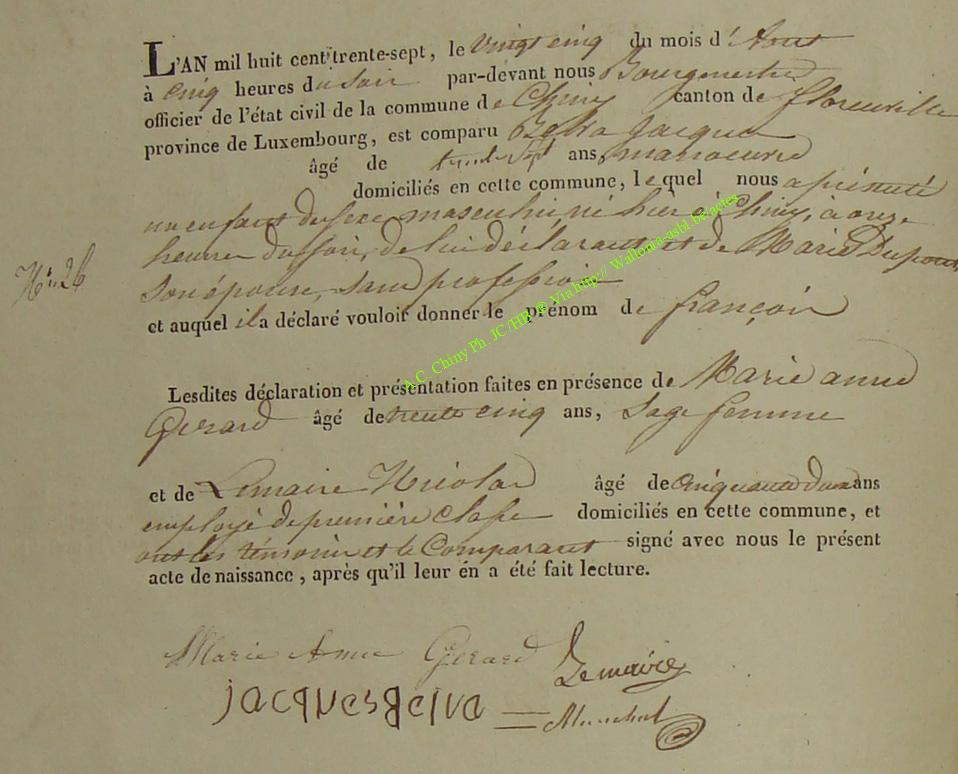 L'AN mil huit cent trente-sept, le vingt cinq du mois d'Aout
à cinq heures du soir par-devant nous Bourgmestre
officier de l'état civil de la commune de Chiny canton de florenville
province de Luxembourg, est comparu Jacques
âgé de trente sept ans, manoeuvre
domiciliés en cette commune, lequel nous a présenté
un enfant du sexe masculin né hier à Chiny, à onze
heures du soir, de lui déclarant et de Marie Dupont
N° 26
son épouse, sans profession
et auquel il a déclaré vouloir donner le prénom de françois
A.C. Chiny Ph. JC /HR © Via http:// Wallonia-asbl.be/actes
Lesdites déclaration et présentation faites en présence de Marie anne
Gerard âgé de trente cinq ans, sage femme
et de Lemaire Nicolas âgé de cinquante deux ans
employé de première classe domiciliés en cette commune, et
ont les témoins et le Comparant signé avec nous le présent
acte de naissance, après qu'il leur en a été fait lecture.
Marie Anne Gerard Lemaire
jacques gelva